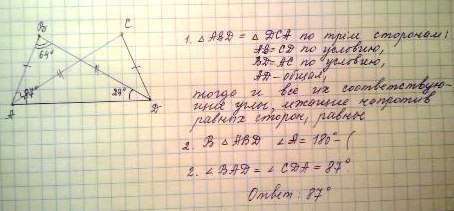 B
C
64°
87°
29°
A
D
1. △ABD = △DCA по трём сторонам:
AB = CD по условию,
BD = AC по условию,
AD – общая,
тогда и все их соответствую-
щие углы, лежащие напротив
равных сторон, равны
2. В △ABD ∠A = 180° – (
2. ∠BAD = ∠CDA = 87°
Ответ: 87°